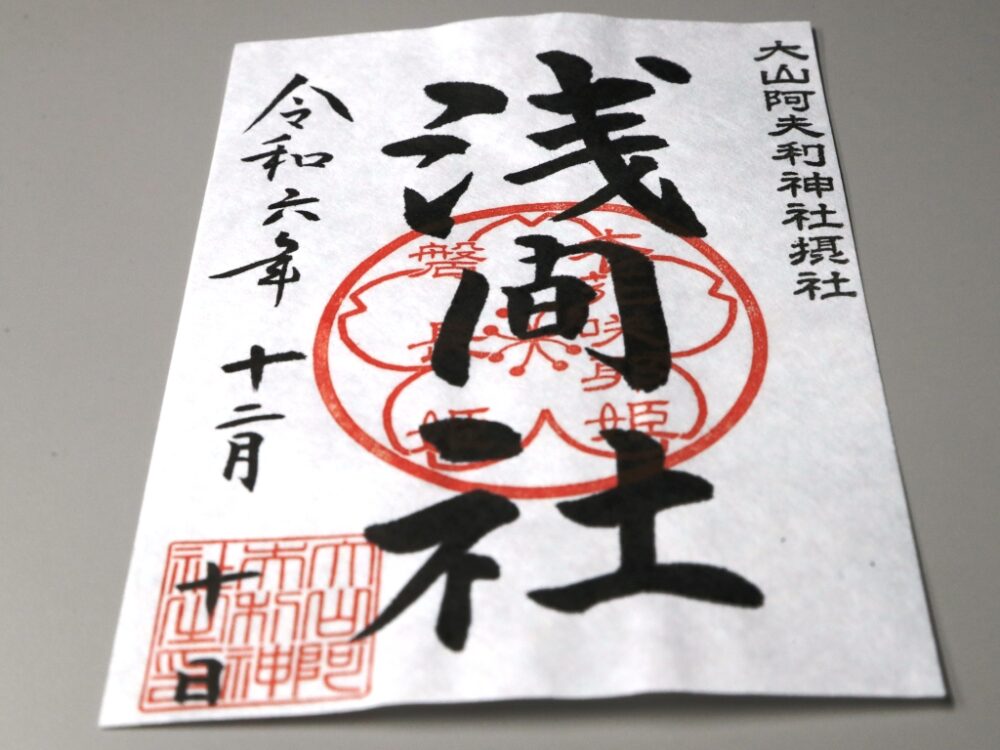 大山阿夫利神社摂社
浅間社
木花咲耶姫
磐長姫
令和六年
十二月
十日
大山阿
夫利神
社之印